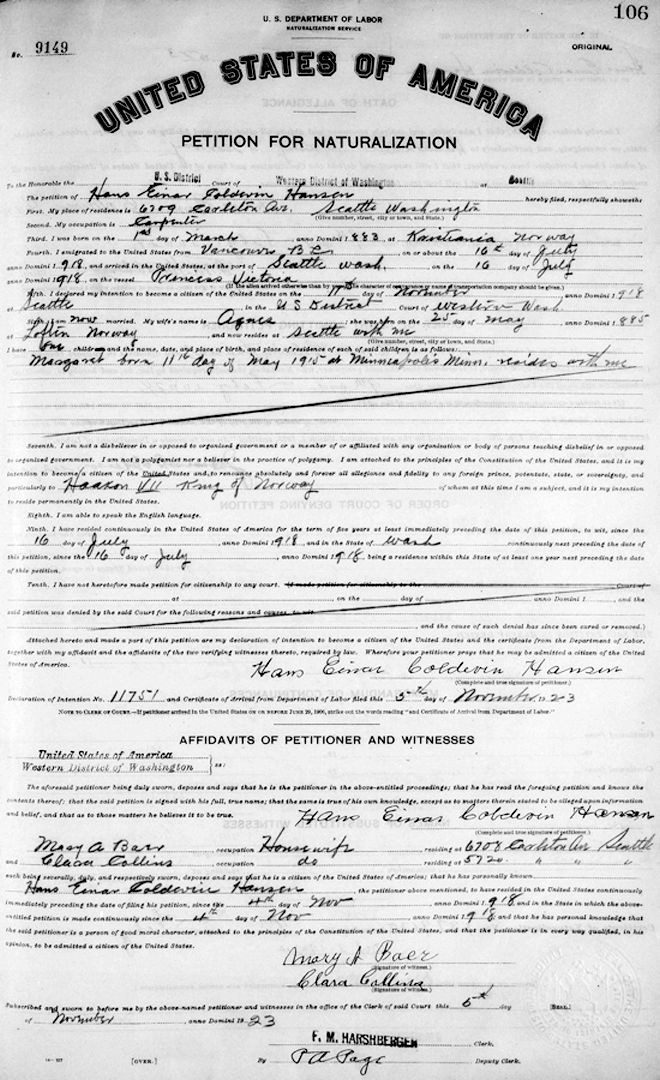 106
U. S. DEPARTMENT OF LABOR
NATURALIZATION SERVICE
No. 9149
ORIGINAL
UNITED STATES OF AMERICA
PETITION FOR NATURALIZATION
To the Honorable the U. S. District Court of Western District of Washington at Seattle
The petition of Hans Einar Coldevin Hansen hereby filed, respectfully showeth:
First. My place of residence is 6709 Carleton Av. Seattle Washington
(Give number, street, city or town, and State.)
Second. My occupation is Carpenter
Third. I was born on the 1st day of March anno Domini 1 883, at Kristiania Norway
Fourth. I emigrated to the United States from Vancouver B C on or about the 16th day of July
anno Domini 1 918, and arrived in the United States, at the port of Seattle Wash. on the 16 day of July
anno Domini 1 918, on the vessel Princess Victoria
(If the alien arrived otherwise than by vessel, the character of conveyance or name of transportation company should be given.)
Fifth. I declared my intention to become a citizen of the United States on the 11th day of November anno Domini 1 918
at Seattle in the U S District Court of Western Wash.
Sixth. I am now married. My wife's name is Agnes She was born on the 25 day of May anno Domini 1 885
at Norway and now resides at Seattle with me
(Give number, street, city or town, and State.)
I have one children and the name, date, and place of birth, and place of residence of each of said children is as follows:
Margaret born 11th day of May 1915 at Minneapolis Minn. resides with me
Seventh. I am not a disbeliever in or opposed to organized government or a member of or affiliated with any organization or body of persons teaching disbelief in or opposed
to organized government. I am not a polygamist nor a believer in the practice of polygamy. I am attached to the principles of the Constitution of the United States, and it is my
intention to become a citizen of the United States and to renounce absolutely and forever all allegiance and fidelity to any foreign prince, potentate, state, or sovereignty, and
particularly to Haakon VII King of Norway of whom at this time I am a subject, and it is my intention
to reside permanently in the United States.
Eighth. I am able to speak the English language.
Ninth. I have resided continuously in the United States of America for the term of five years at least immediately preceding the date of this petition, to wit, since the
16 day of July anno Domini 1 918, and in the State of Wash continuously next preceding the date
of this petition, since the 16 day of July, anno Domini 1 918, being a residence within this State of at least one year next preceding the date
of this petition.
Tenth. I have not heretofore made petition for citizenship to any court. (I made petition for citizenship to the Court of
at on the day of anno Domini 1 and the
said petition was denied by the said Court for the following reasons and causes, to wit
and the cause of such denial has since been cured or removed.)
Attached hereto and made a part of this petition are my declaration of intention to become a citizen of the United States and the certificate from the Department of Labor,
together with my affidavit and the affidavits of the two verifying witnesses thereto, required by law. Wherefore your petitioner prays that he may be admitted a citizen of the United
States of America.
Hans Einar Coldevin Hansen
(Complete and true signature of petitioner.)
Declaration of Intention No. 11751 and Certificate of Arrival from Department of Labor filed this 5th day of November, 19 23
NOTE TO CLERK OF COURT.—If petitioner arrived in the United States on or before June 29, 1906, strike out the words reading "and Certificate of Arrival from Department of Labor."
AFFIDAVITS OF PETITIONER AND WITNESSES
United States of America
Western District of Washington } ss:
The aforesaid petitioner being duly sworn, deposes and says that he is the petitioner in the above-entitled proceedings; that he has read the foregoing petition and knows the
contents thereof; that the said petition is signed with his full, true name; that the same is true of his own knowledge, except as to matters therein stated to be alleged upon information
and belief, and that as to those matters he believes it to be true.
Hans Einar Coldevin Hansen
(Complete and true signature of petitioner.)
Mary A Baer, occupation Housewife, residing at 6708 Carleton Av Seattle
and Clara Collins, occupation do, residing at 5720 " " "
each being severally, duly, and respectively sworn, deposes and says that he is a citizen of the United States of America; that he has personally known
Hans Einar Coldevin Hansen, the petitioner above mentioned, to have resided in the United States continuously
immediately preceding the date of filing his petition, since the 4th day of Nov, anno Domini 1 918, and in the State in which the above-
entitled petition is made continuously since the 4th day of Nov, anno Domini 1 918, and that he has personal knowledge that
the said petitioner is a person of good moral character, attached to the principles of the Constitution of the United States, and that the petitioner is in every way qualified, in his
opinion, to be admitted a citizen of the United States.
Mary A Baer
(Signature of witness.)
Clara Collins
(Signature of witness.)
Subscribed and sworn to before me by the above-named petitioner and witnesses in the office of the Clerk of said Court this 5th day
[SEAL.]
of November, anno Domini 19 23
F. M. HARSHBERGER Clerk.
[OVER.]
By P A Page Deputy Clerk.